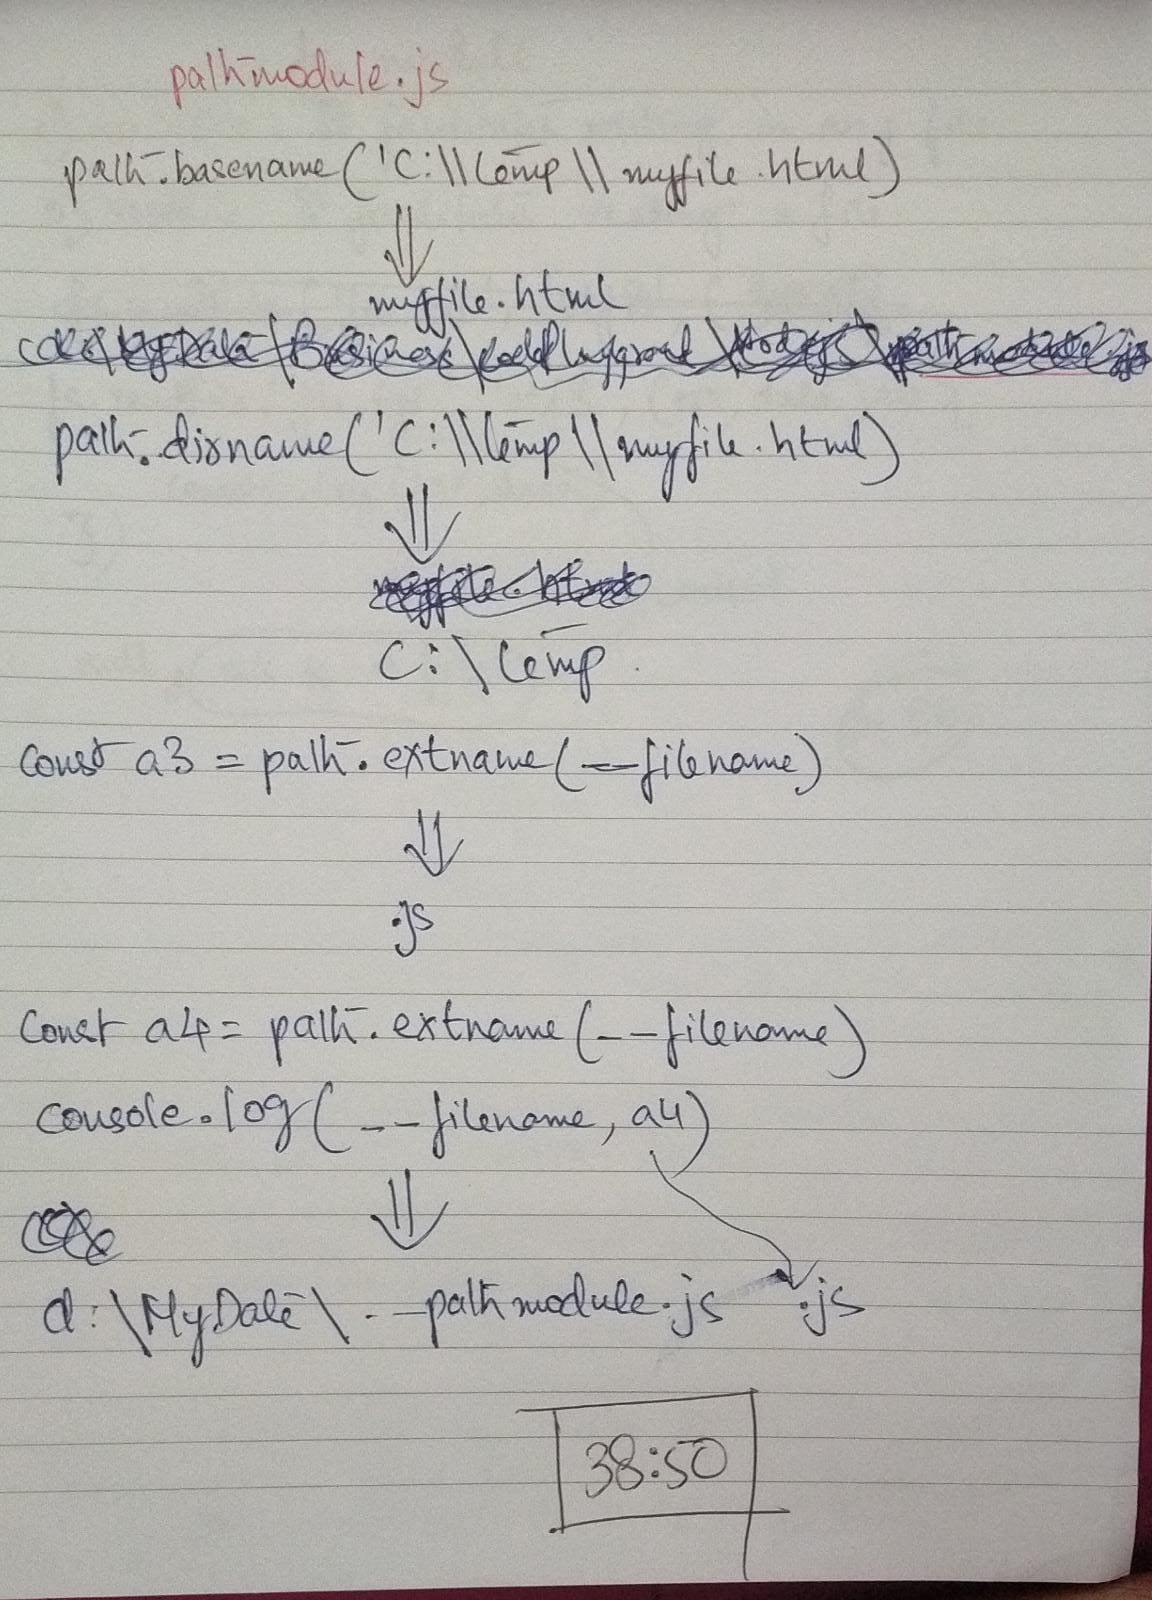 pathmodule.js
path.basename('C:\\temp\\myfile.html)
⇓
myfile.html
path.dirname('C:\\temp\\myfile.html)
⇓
C:\temp
const a3 = path.extname(__filename)
⇓
.js
const a4 = path.extname(__filename)
console.log(__filename, a4)
⇓
d:\MyData\.--pathmodule.js .js
38:50